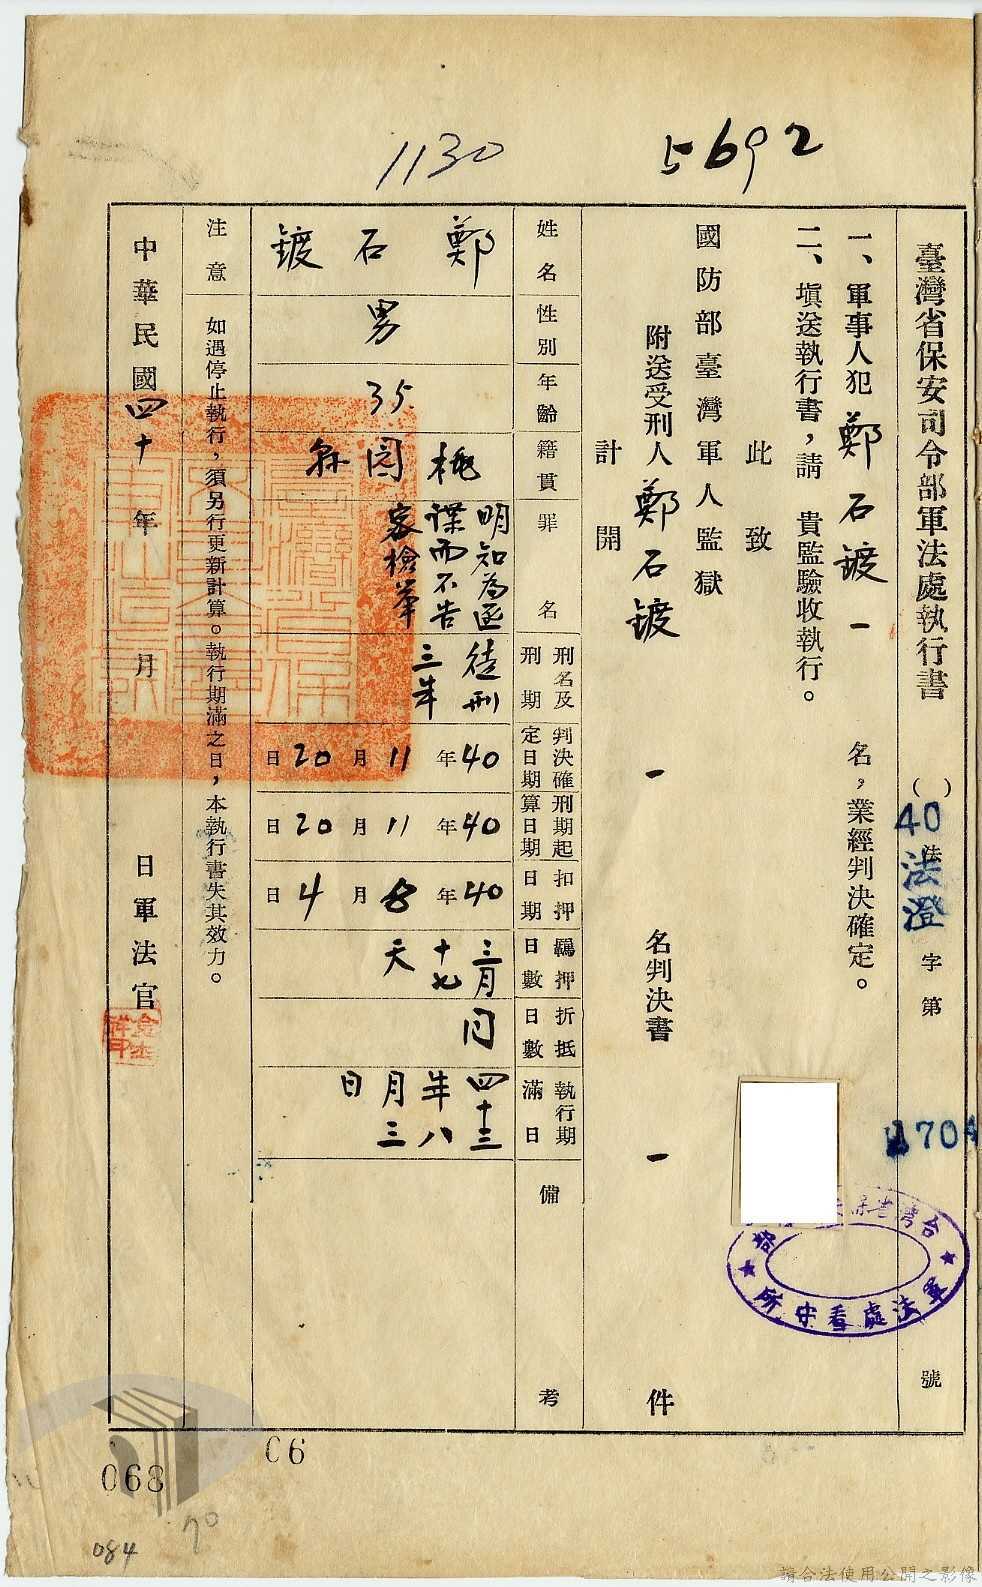 1130
5692
臺灣省保安司令部軍法處執行書
(　)
40
法澄
法
字第
1704
號
一、軍事人犯鄭石鍍一名，業經判決確定。
二、填送執行書，請　貴監驗收執行。
此致
國防部臺灣軍人監獄
附送受刑人鄭石鍍一名判決書一件
計開
姓名
鄭石鍍
性別
男
年齡
35
籍貫
桃園縣
罪名
明知為匪
諜而不告
密檢舉
刑名及刑期
徒刑
三年
判決確定日期
40年11月20日
刑期起算日期
40年11月20日
扣押日期
40年8月4日
羈押日數
三月
十七
天
折抵日數
同
執行期滿日
四十三
年八
月三
日
備考
注意
如遇停止執行，須另行更新計算。執行期滿之日，本執行書失其效力。
中華民國四十年　月　日軍法官
台灣省保
軍法處看守所
068
06
70
084
請合法使用公開之影像